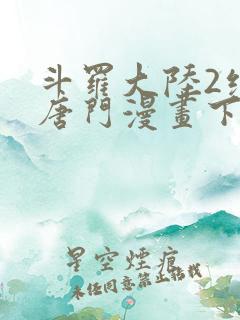 斗羅大陸2
唐門漫畫下
星空煙痕
未经同意禁止转载